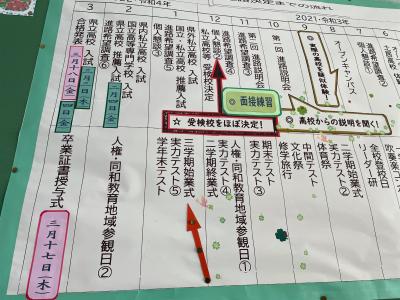 決定までの流れ
令和4年
2021・令和3年
3
2
9
8
オープンキャンパス
★実際の高校を疑似体験！
第一回 進路説明会
進路希望調査③
個人懇談②
私立高校等 受検校決定
国立・私立高校 推薦入試
進路希望調査⑤
個人懇談③
県内私立高校 入試
国立高等専門学校 入試
県立高校 推薦入試
二月四日(金)
進路希望調査⑥
県立高校 入試
三月三日(木)
四日(金)
合格発表
三月十八日(金)
◎ 面接練習
☆ 受検校をほぼ決定！
◎ 高校からの説明を聞く！
全校登校日
リーダー研
二学期始業式
実力テスト②
体育祭
中間テスト
文化祭
修学旅行
実力テスト③
期末テスト
人権・同和教育地域参観日①
実力テスト④
二学期終業式
三学期始業式
実力テスト⑤
学年末テスト
人権・同和教育地域参観日②
卒業証書授与式
三月十七日(木)